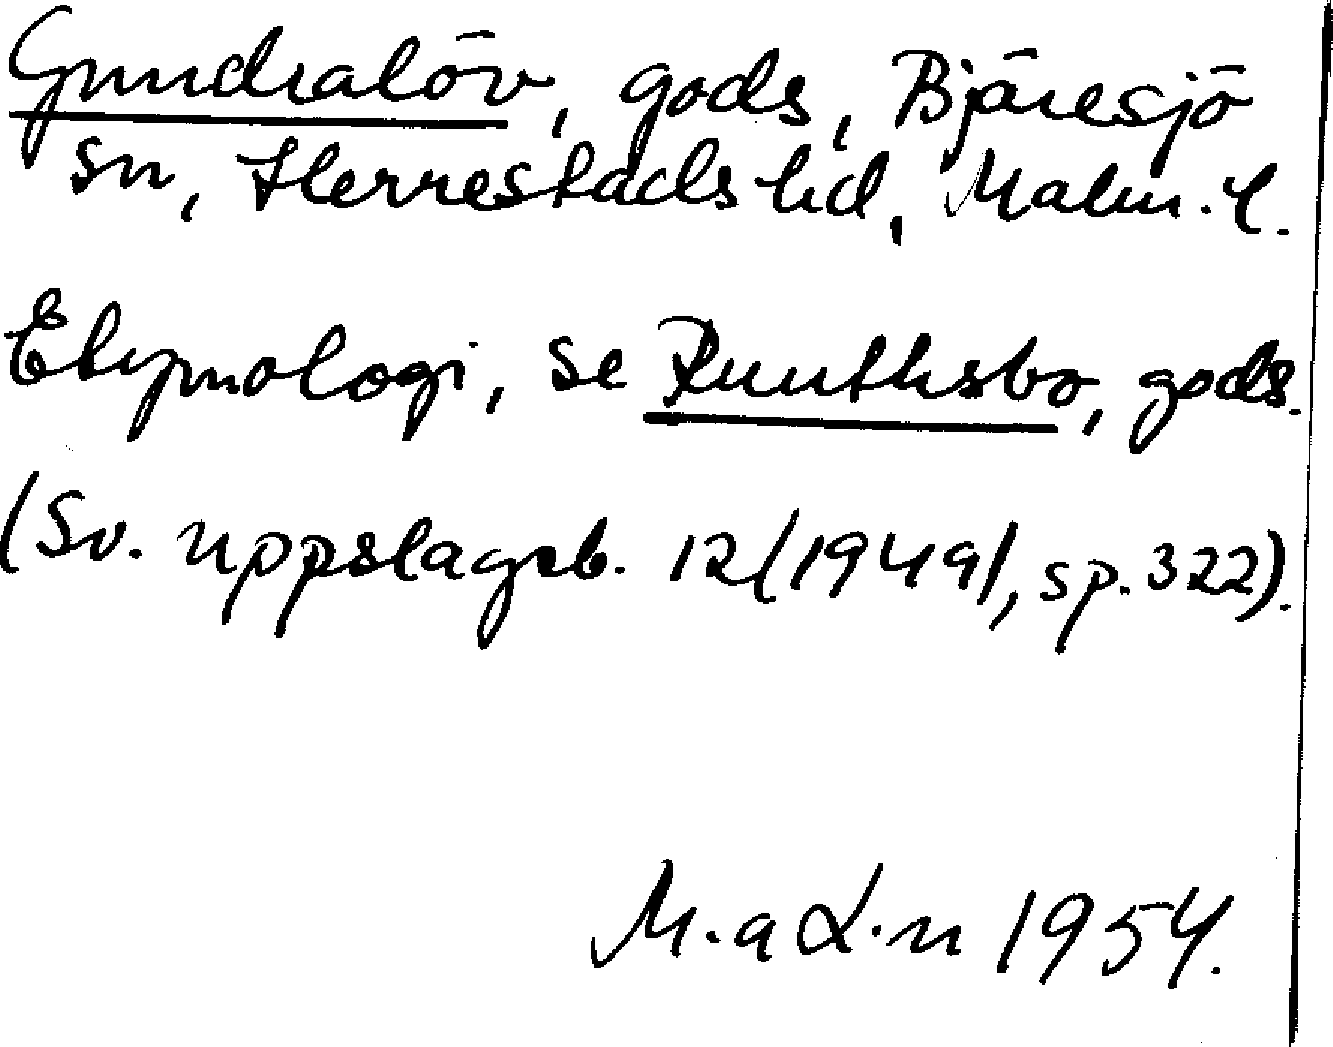 Gundralöv, gods, Bjäresjö
sn, Herrestads hd, Malm. l.
Etymologi, se Ruuthsbo, gods.
(Sv. uppslagsb. 12/1949/, sp. 322).
1954.